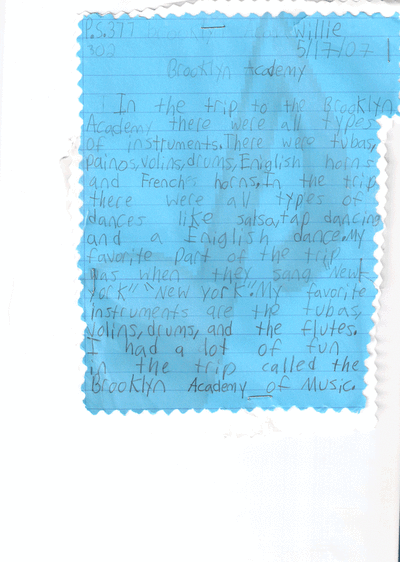 P.S.377 Willie
302 5/17/07
Brooklyn Academy
In the trip to the Brooklyn
Academy there were all types
of instruments. There were tubas,
painos, volins, drums, Eniglish horns
and Frenches horns, In the trip
there were all types of
dances like salsa, tap dancing
and a Eniglish dance. My
favorite part of the trip
was when they sang "New
york" "New york". My favorite
instruments are the tubas,
volins, drums, and the flutes.
I had a lot of fun
in the trip called the
Brooklyn Academy of Music.